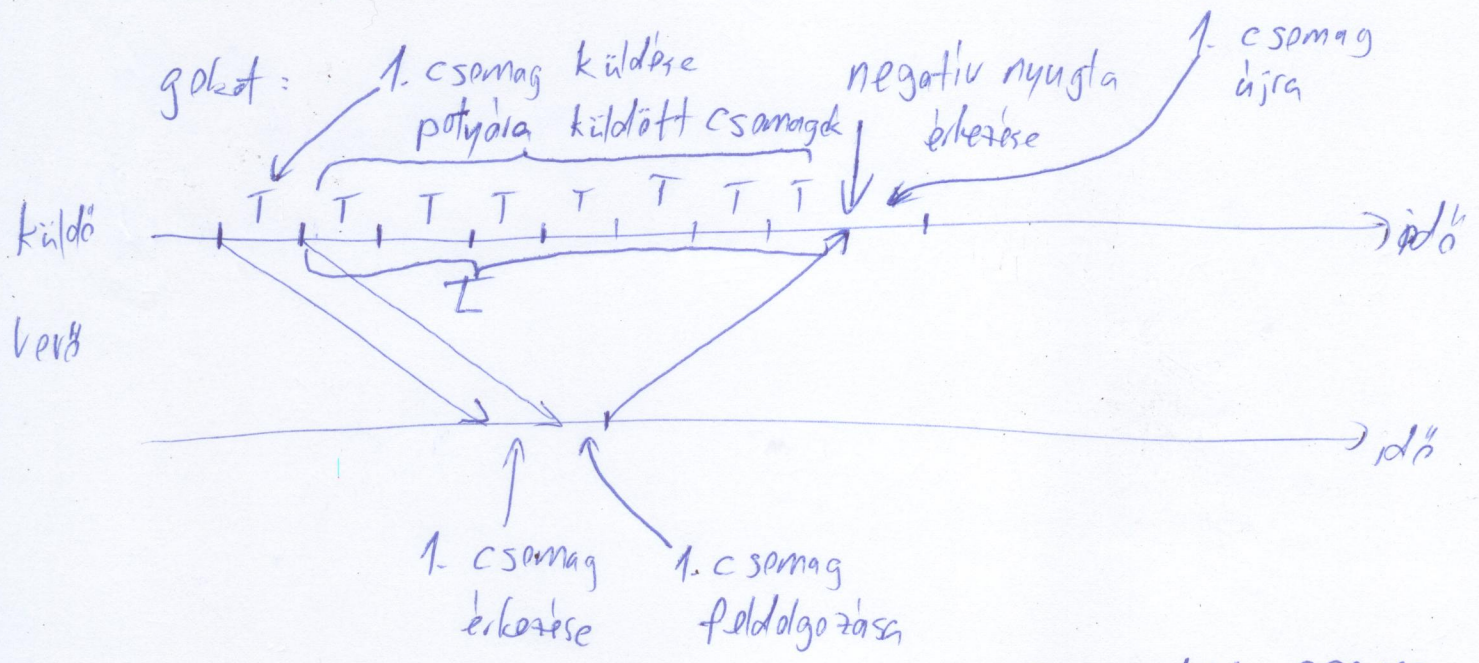 gokot:
1. csomag küldése
potyára küldött csomagok
negativ nyugta
érkezése
1. csomag
újra
T T T T T T T T
küldő
idő
τ
vevő
idő
1. csomag
érkezése
1. csomag
feldolgozása